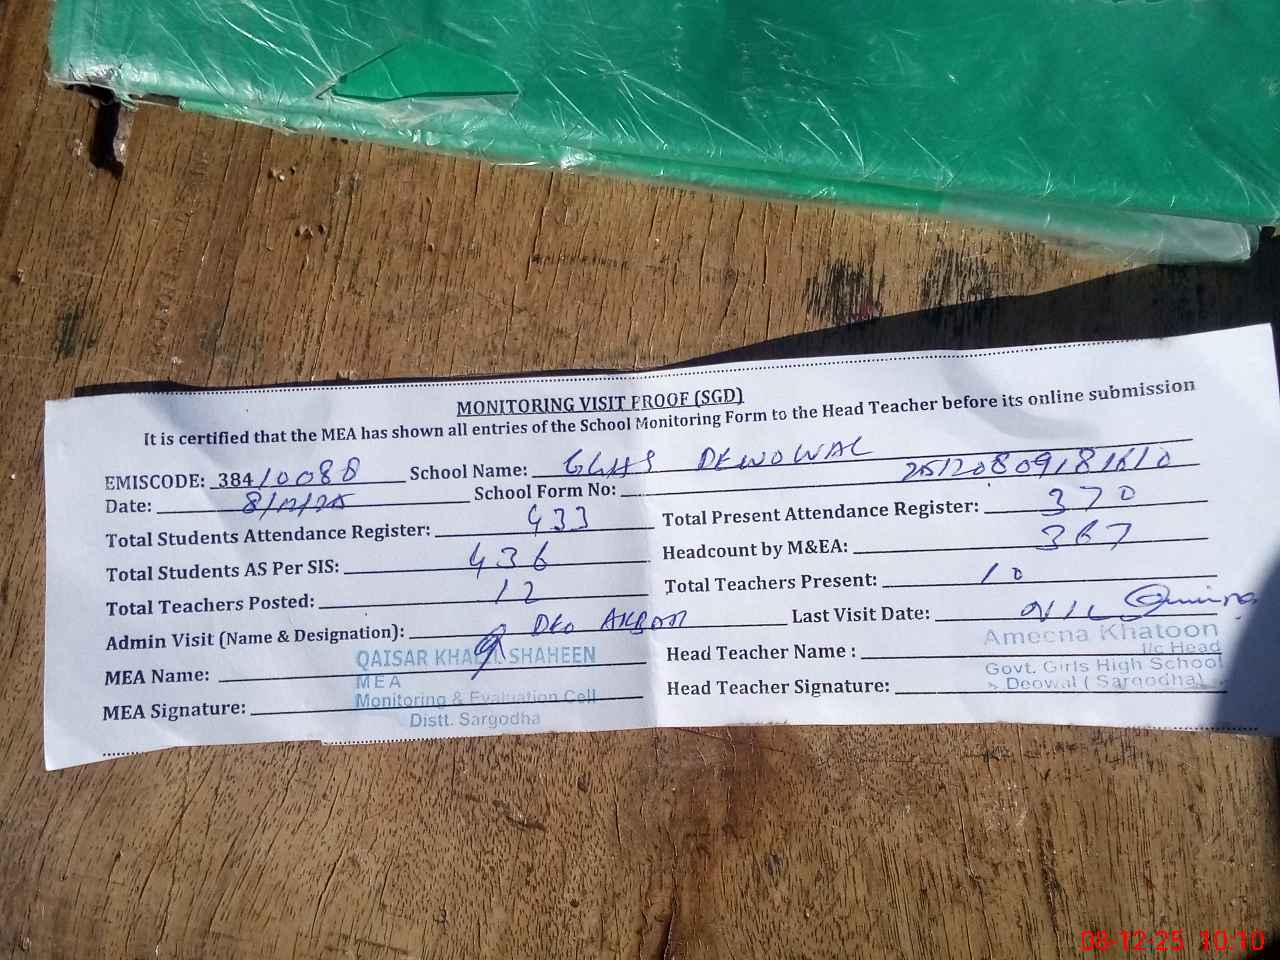 MONITORING VISIT PROOF (SGD)
It is certified that the MEA has shown all entries of the School Monitoring Form to the Head Teacher before its online submission
EMISCODE: 38410088 School Name: GGHS DEWOWAL
Date: 8/12/25 School Form No:
Total Students Attendance Register: 433 Total Present Attendance Register: 370
Total Students AS Per SIS: 436 Headcount by M&EA: 367
Total Teachers Posted: 12 Total Teachers Present: 10
Admin Visit (Name & Designation): DEO AKBAR Last Visit Date:
MEA Name: QAISAR KHALIL SHAHEEN Head Teacher Name : Ameena Khatoon
I/c Head
MEA Govt. Girls High School
MEA Signature: Monitoring & Evaluation Cell Head Teacher Signature: Deowal ( Sargodha)
Distt. Sargodha
08-12-25 10:10